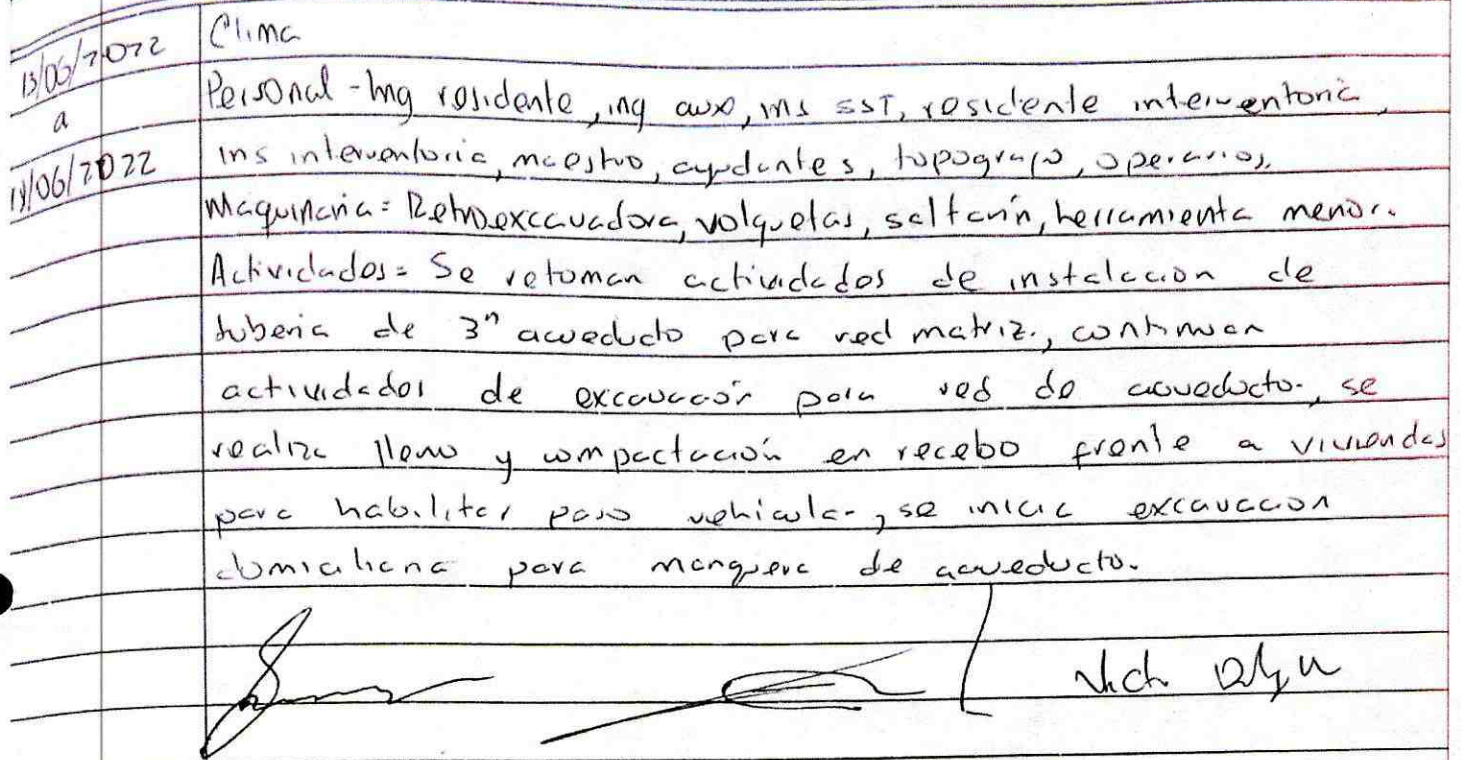 13/06/2022
a
18/06/2022
Clima
Personal - Ing residente, ing aux, ins SST, residente interventoria,
ins interventoria, maestro, ayudantes, topografo, operarios.
Maquinaria = Retroexcavadora, volquetas, saltarín, herramienta menor.
Actividades = Se retoman actividades de instalacion de
tuberia de 3" acueducto para red matriz., continuan
actividades de excavación para red de acueducto., se
realiza lleno y compactación en recebo frente a viviendas
para habilitar paso vehicular, se inicia excavacion
domiciliaria para manguera de acueducto.